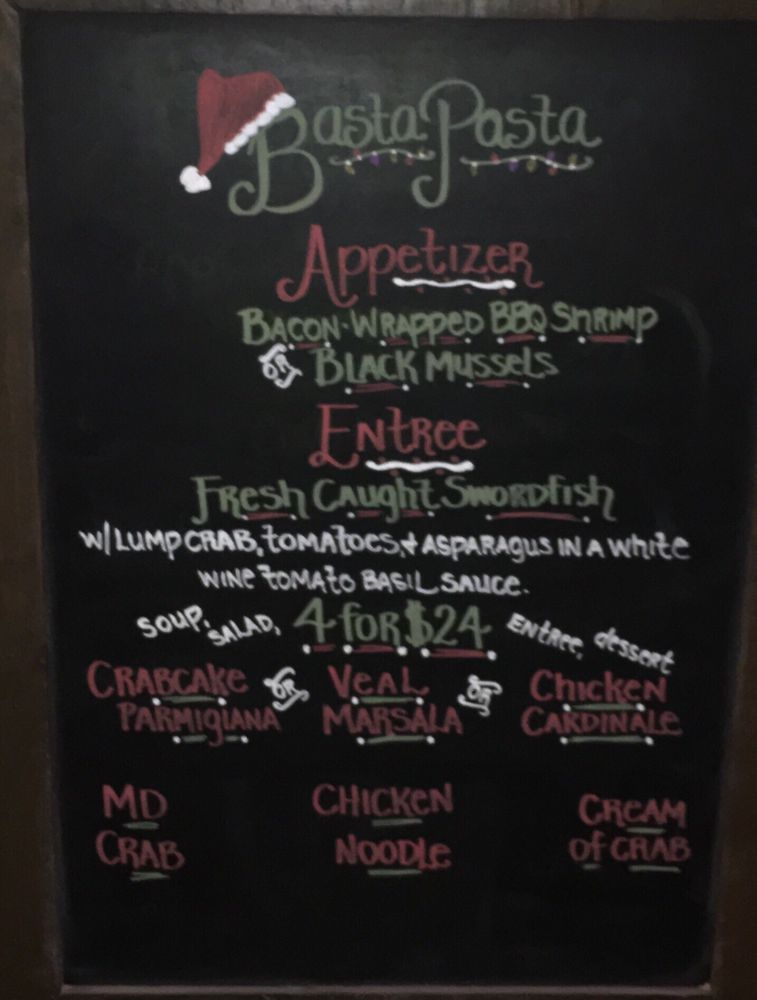 Basta Pasta
Appetizer
Bacon-Wrapped BBQ Shrimp
or Black Mussels
Entree
Fresh Caught Swordfish
w/ Lump Crab, tomatoes, + Asparagus in a white
wine tomato basil sauce.
Soup, Salad, 4 for $24 Entree, dessert
Crabcake or Veal or Chicken
Parmigiana Marsala Cardinale
MD Chicken Cream
Crab Noodle of Crab